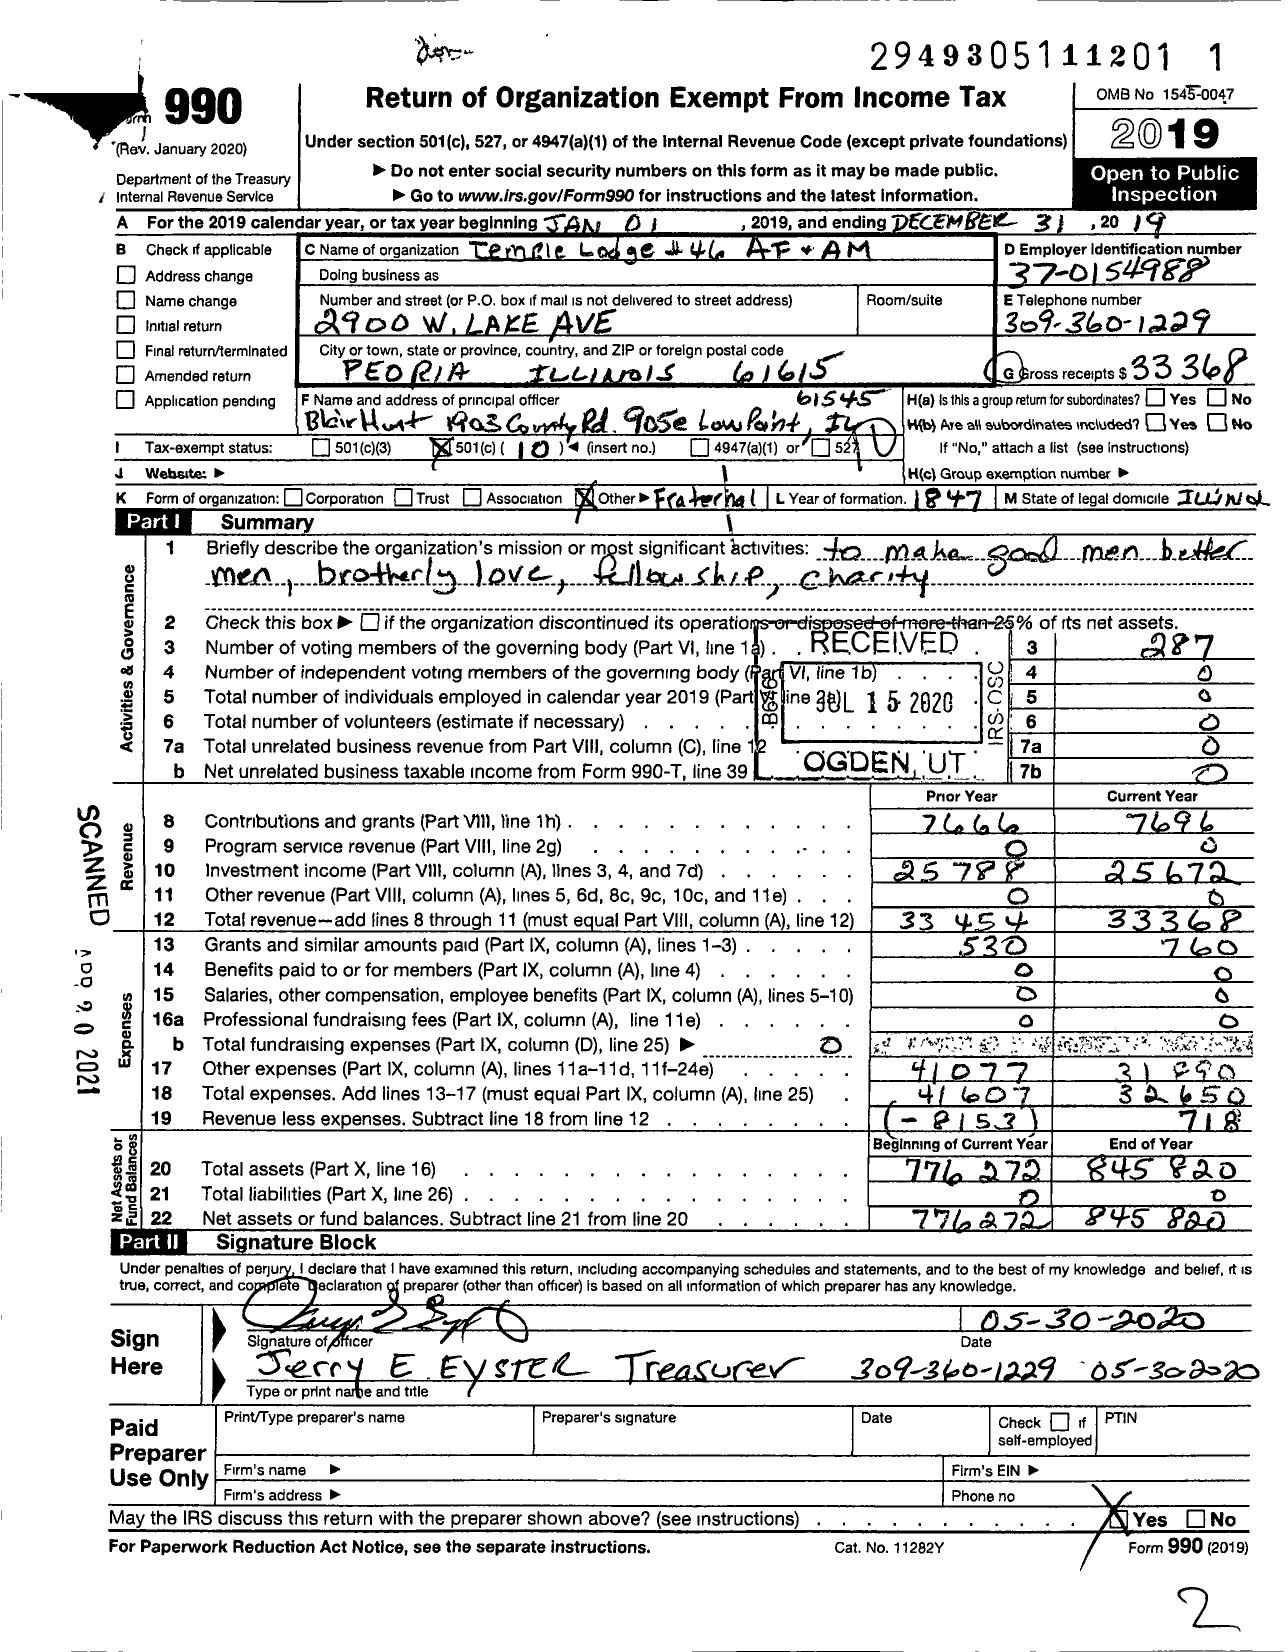 29493051112011
Form 990
Return of Organization Exempt From Income Tax
OMB No 1545-0047
(Rev. January 2020)
Under section 501(c), 527, or 4947(a)(1) of the Internal Revenue Code (except private foundations)
2019
Department of the Treasury
Internal Revenue Service
▶ Do not enter social security numbers on this form as it may be made public.
▶ Go to www.irs.gov/Form990 for instructions and the latest information.
Open to Public
Inspection
A For the 2019 calendar year, or tax year beginning JAN 01 , 2019, and ending DECEMBER 31 , 20 19
B Check if applicable
C Name of organization Temple Lodge #46 AF + AM
D Employer identification number
Address change
Doing business as
37-0154988
Name change
Number and street (or P.O. box if mail is not delivered to street address)
Room/suite
E Telephone number
Initial return
2900 W. LAKE AVE
309-360-1229
Final return/terminated
City or town, state or province, country, and ZIP or foreign postal code
Amended return
PEORIA ILLINOIS 61615
G Gross receipts $ 33 368
Application pending
F Name and address of principal officer 61545
Blair Hunt 1903 County Rd. 905e Low Point, IL
H(a) Is this a group return for subordinates? Yes No
H(b) Are all subordinates included? Yes No
I Tax-exempt status: 501(c)(3) 501(c) ( 10 ) ◀ (insert no.) 4947(a)(1) or 527
If "No," attach a list (see instructions)
J Website: ▶
H(c) Group exemption number ▶
K Form of organization: Corporation Trust Association Other ▶ Fraternal
L Year of formation. 1847
M State of legal domicile ILLINOI
Part I Summary
Activities & Governance
1 Briefly describe the organization's mission or most significant activities: to make good men better
men, brotherly love, fellowship, charity
2 Check this box ▶ if the organization discontinued its operations or disposed of more than 25% of its net assets.
3 Number of voting members of the governing body (Part VI, line 1a) 3 287
4 Number of independent voting members of the governing body (Part VI, line 1b) 4 0
5 Total number of individuals employed in calendar year 2019 (Part V, line 2a) 5 0
6 Total number of volunteers (estimate if necessary) 6 0
7a Total unrelated business revenue from Part VIII, column (C), line 12 7a 0
b Net unrelated business taxable income from Form 990-T, line 39 7b 0
RECEIVED
JUL 15 2020
IRS-OSC
OGDEN, UT
Revenue
Prior Year Current Year
8 Contributions and grants (Part VIII, line 1h) 7666 7696
9 Program service revenue (Part VIII, line 2g) 0 0
10 Investment income (Part VIII, column (A), lines 3, 4, and 7d) 25 788 25672
11 Other revenue (Part VIII, column (A), lines 5, 6d, 8c, 9c, 10c, and 11e) 0 0
12 Total revenue—add lines 8 through 11 (must equal Part VIII, column (A), line 12) 33 454 33368
Expenses
13 Grants and similar amounts paid (Part IX, column (A), lines 1–3) 530 760
14 Benefits paid to or for members (Part IX, column (A), line 4) 0 0
15 Salaries, other compensation, employee benefits (Part IX, column (A), lines 5–10) 0 0
16a Professional fundraising fees (Part IX, column (A), line 11e) 0 0
b Total fundraising expenses (Part IX, column (D), line 25) ▶ 0
17 Other expenses (Part IX, column (A), lines 11a–11d, 11f–24e) 41077 31890
18 Total expenses. Add lines 13–17 (must equal Part IX, column (A), line 25) 41607 32650
19 Revenue less expenses. Subtract line 18 from line 12 (-8153) 718
Net Assets or
Fund Balances
Beginning of Current Year End of Year
20 Total assets (Part X, line 16) 776 272 845 820
21 Total liabilities (Part X, line 26) 0 0
22 Net assets or fund balances. Subtract line 21 from line 20 776272 845 820
SCANNED
2021
Part II Signature Block
Under penalties of perjury, I declare that I have examined this return, including accompanying schedules and statements, and to the best of my knowledge and belief, it is
true, correct, and complete Declaration of preparer (other than officer) is based on all information of which preparer has any knowledge.
Sign
Here
05-30-2020
Signature of officer Date
Jerry E. EYSTER Treasurer 309-360-1229 05-302020
Type or print name and title
Paid
Preparer
Use Only
Print/Type preparer's name
Preparer's signature
Date
Check if
self-employed
PTIN
Firm's name ▶
Firm's EIN ▶
Firm's address ▶
Phone no
May the IRS discuss this return with the preparer shown above? (see instructions) Yes No
For Paperwork Reduction Act Notice, see the separate instructions.
Cat. No. 11282Y
Form 990 (2019)
2